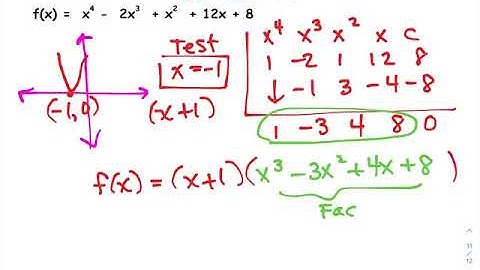 f(x) = x⁴ - 2x³ + x² + 12x + 8
Test
x=-1
x⁴ x³ x² x C
1 -2 1 12 8
↓ -1 3 -4 -8
1 -3 4 8 0
(-1,0)
(x+1)
f(x) = (x+1)(x³-3x²+4x+8)
Fac
11
/
12